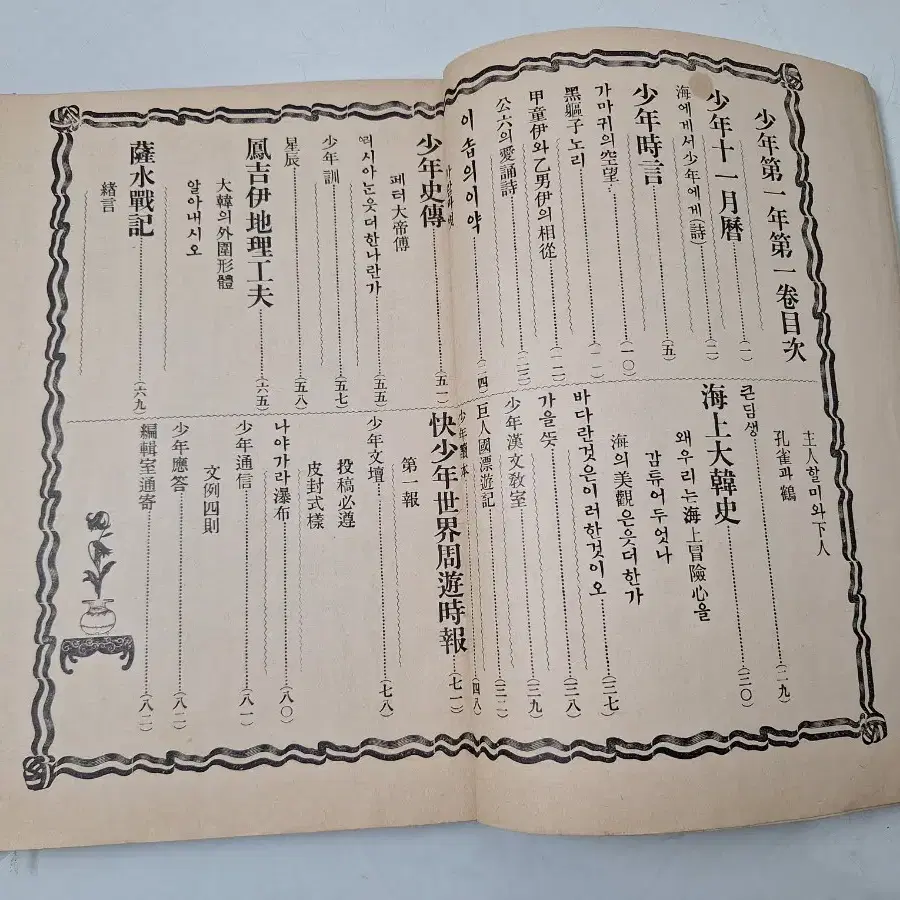 少年第一年第一卷目次
少年十一月曆(一)
海에게서少年에게(詩)(二)
少年時言(五)
가마귀의空望(一〇)
黑軀子노리(一一)
甲童伊와乙男伊의相從(一二)
公六의愛誦詩(二三)
이솝의이약(二四)
主人할미와下人
孔雀과鶴
큰딤생(二九)
海上大韓史(三〇)
왜우리는海上冒險心을
감튜어두엇나
海의美觀은읏더한가
바다란것은이러한것이오(三七)
가을뜻(三八)
少年漢文敎室(三九)
巨人國漂遊記
少年讀本(四八)
少年史傳(五一)
페터大帝傳
러시아는읏더한나란가(五五)
少年訓(五七)
星辰(五八)
鳳吉伊地理工夫(六五)
大韓의外圍形體
알아내시오
薩水戰記(六九)
緖言
快少年世界周遊時報(七一)
第一報
少年文壇(七八)
投稿必遵
皮封式樣
나야가라瀑布(八〇)
少年通信(八一)
文例四則
少年應答(八二)
編輯室通寄(八二)